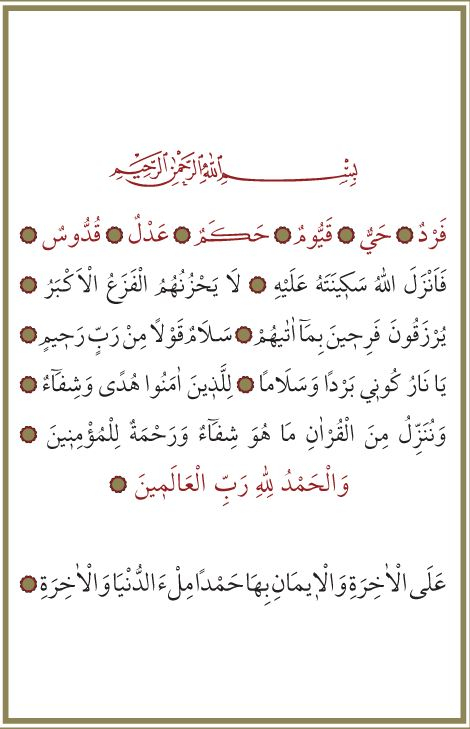 بِسْمِ اللهِ الرَّحْمٰنِ الرَّحِيمِ
فَرْدٌ ۞ حَيٌّ ۞ قَيُّومٌ ۞ حَكَمٌ ۞ عَدْلٌ ۞ قُدُّوسٌ ۞
فَاَنْزَلَ اللهُ سَكِينَتَهُ عَلَيْهِ ۞ لَا يَحْزُنُهُمُ الْفَزَعُ الْاَكْبَرُ ۞
يُرْزَقُونَ فَرِحِينَ بِمَٓا اٰتٰيهُمْ ۞ سَلَامٌ قَوْلًا مِنْ رَبٍّ رَحِيمٍ ۞
يَا نَارُ كُونِي بَرْدًا وَسَلَامًا ۞ لِلَّذِينَ اٰمَنُوا هُدًى وَشِفَٓاءٌ ۞
وَنُنَزِّلُ مِنَ الْقُرْاٰنِ مَا هُوَ شِفَٓاءٌ وَرَحْمَةٌ لِلْمُؤْمِنِينَ ۞
وَالْحَمْدُ لِلهِ رَبِّ الْعَالَمِينَ ۞
عَلَى الْاٰخِرَةِ وَالْاِيمَانِ بِهَا حَمْدًا مِلْءَ الدُّنْيَا وَالْاٰخِرَةِ ۞